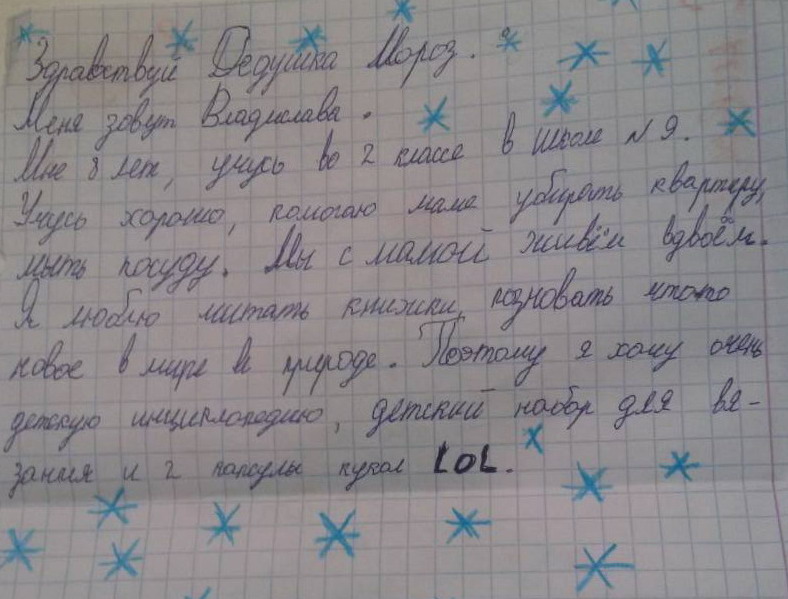 Здравствуй Дедушка Мороз.
Меня зовут Владислава.
Мне 8 лет, учусь во 2 классе в школе №9.
Учусь хорошо, помогаю маме убирать квартеру,
мыть посуду. Мы с мамой живём вдвоём.
Я люблю читать книжки, позновать что то
новое в мире и природе. Поэтому я хочу очень
детскую инциклопедию, детский набор для вя-
зания и 2 капсулы кукол LOL.